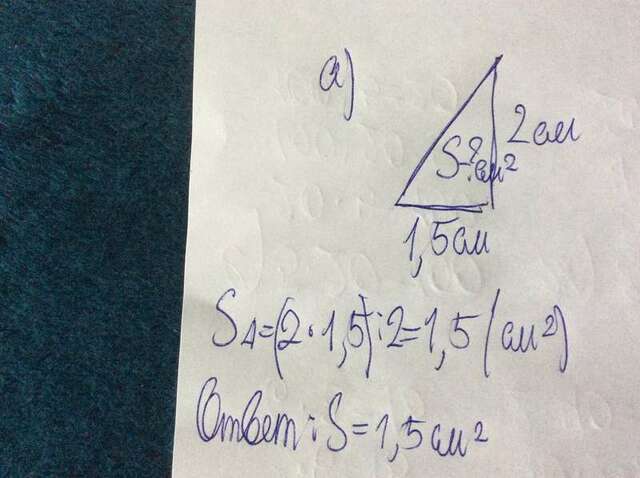 а)
2 см
S-? см²
1,5 см
S△=(2·1,5):2=1,5 (см²)
Ответ: S=1,5 см²